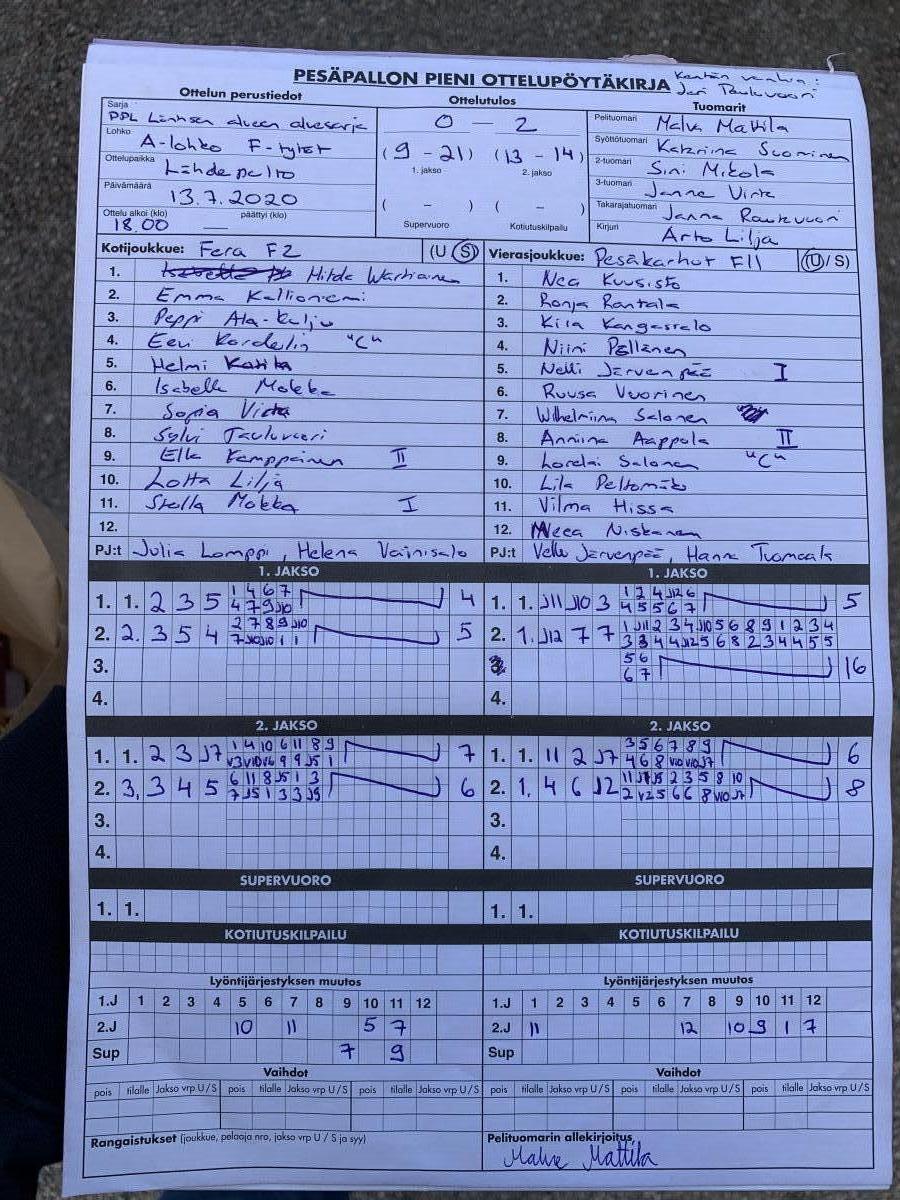 PESÄPALLON PIENI OTTELUPÖYTÄKIRJA
Kentän vanhin:
Jari Paukuvuori
Ottelun perustiedot
Ottelutulos
Tuomarit
Sarja
PPL Länsi alueen aluesarja
Lohko
A-lohko F-tytöt
Ottelupaikka
Lähdepelto
Päivämäärä
13.7.2020
Ottelu alkoi (klo) päättyi (klo)
18.00 —
0 – 2
(9 – 21) (13 – 14)
1. jakso 2. jakso
( – ) ( – )
Supervuoro Kotiutuskilpailu
Pelituomari Malva Mattila
Syöttötuomari Katariina Suominen
2-tuomari Sini Mikola
3-tuomari Janne Virta
Takarajatuomari Janna
Kirjuri Arto Lilja
Kotijoukkue: Fera F2 (U/S)
1. Hilda Wartiainen
2. Emma Kallioniemi
3. Peppi Ala-Kulju
4. Eevi Kordelin "C"
5. Helmi Katila
6. Isabella Mokka
7. Sofia Virta
8. Sylvi
9. Ella Kamppainen II
10. Lotta Lilja
11. Stella Mokka I
12.
PJ:t Julia Lamppi, Helena Vainisalo
Vierasjoukkue: Pesäkarhut F11 (U/S)
1. Nea Kuusisto
2. Ronja Rantala
3. Kiia Kangassalo
4. Niini Pellinen
5. Nelli Järvenpää I
6. Ruusa Vuorinen
7. Wilhelmiina Salonen
8. Anniina Aappola II
9. Lorelai Salonen "C"
10. Lila Peltomäki
11. Vilma Hissa
12. Neea Niskanen
PJ:t Velle Järvenpää, Hanna Tuomaala
1. JAKSO
1. 1. 2 3 5 1 4 6 7 4
4 7 9 J10
2. 2. 3 5 4 2 7 8 9 J10 5
7 J10 J10 1 1
3.
4.
1. JAKSO
1. 1. J11 J10 3 1 2 4 J12 6 5
4 5 5 6 7
2. 1. J12 7 7 1 J11 2 3 4 J10 5 6 8 9 1 2 3 4
3 3 4 4 J12 5 6 8 2 3 4 4 5 5
5 6 16
6 7
4.
2. JAKSO
1. 1. 2 3 J7 1 4 10 6 11 8 9 7
V3 V10 V6 9 9 J5 1
2. 3. 3 4 5 6 11 8 J5 1 3 6
7 J5 1 3 3 J9
3.
4.
2. JAKSO
1. 1. 11 2 J7 3 5 6 7 8 9 6
4 6 8 V10 V10 J7
2. 1. 4 6 J12 11 J7 J5 2 3 5 8 10 8
2 V2 5 6 6 8 V10 J7
3.
4.
SUPERVUORO
1. 1.
SUPERVUORO
1. 1.
KOTIUTUSKILPAILU
KOTIUTUSKILPAILU
Lyöntijärjestyksen muutos
1.J 1 2 3 4 5 6 7 8 9 10 11 12
2.J 10 11 5 7
Sup 7 9
Lyöntijärjestyksen muutos
1.J 1 2 3 4 5 6 7 8 9 10 11 12
2.J 11 12 10 9 1 7
Sup
Vaihdot
pois tilalle Jakso vrp U / S pois tilalle Jakso vrp U / S pois tilalle Jakso vrp U / S
Vaihdot
pois tilalle Jakso vrp U / S pois tilalle Jakso vrp U / S pois tilalle Jakso vrp U / S
Rangaistukset (joukkue, pelaaja nro, jakso vrp U / S ja syy)
Pelituomarin allekirjoitus
Malva Mattila